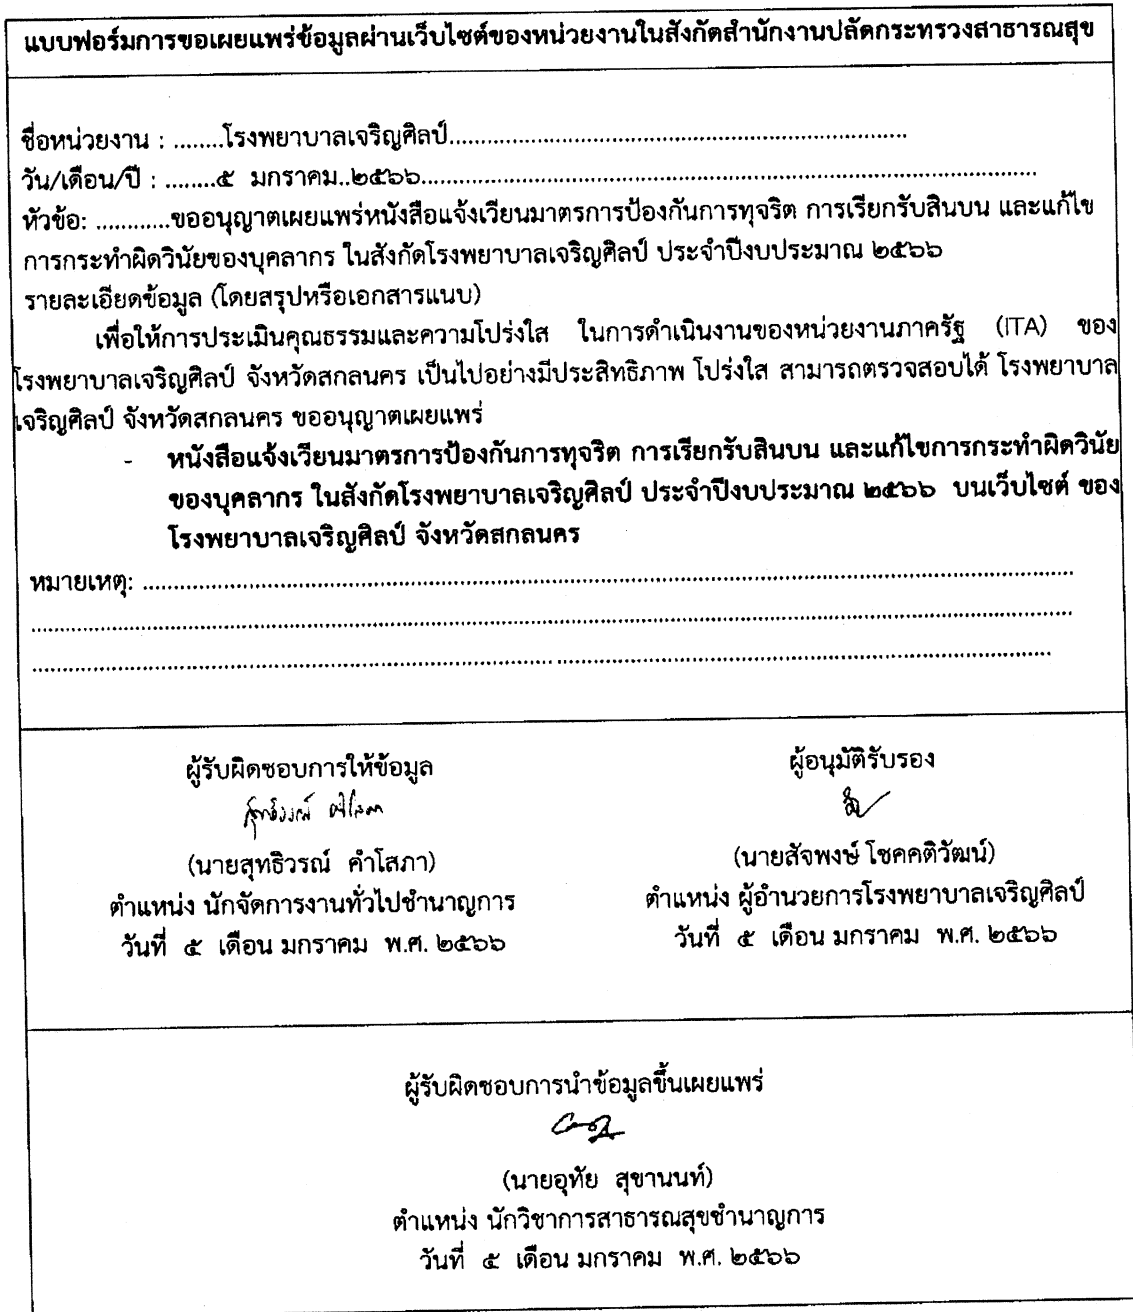 แบบฟอร์มการขอเผยแพร่ข้อมูลผ่านเว็บไซต์ของหน่วยงานในสังกัดสำนักงานปลัดกระทรวงสาธารณสุข
ชื่อหน่วยงาน : ........โรงพยาบาลเจริญศิลป์..........................................................................
วัน/เดือน/ปี : ........๕ มกราคม..๒๕๖๖....................................................................................................
หัวข้อ: ............ขออนุญาตเผยแพร่หนังสือแจ้งเวียนมาตรการป้องกันการทุจริต การเรียกรับสินบน และแก้ไข
การกระทำผิดวินัยของบุคลากร ในสังกัดโรงพยาบาลเจริญศิลป์ ประจำปีงบประมาณ ๒๕๖๖
รายละเอียดข้อมูล (โดยสรุปหรือเอกสารแนบ)
เพื่อให้การประเมินคุณธรรมและความโปร่งใส ในการดำเนินงานของหน่วยงานภาครัฐ (ITA) ของ
โรงพยาบาลเจริญศิลป์ จังหวัดสกลนคร เป็นไปอย่างมีประสิทธิภาพ โปร่งใส สามารถตรวจสอบได้ โรงพยาบาล
เจริญศิลป์ จังหวัดสกลนคร ขออนุญาตเผยแพร่
- หนังสือแจ้งเวียนมาตรการป้องกันการทุจริต การเรียกรับสินบน และแก้ไขการกระทำผิดวินัย
ของบุคลากร ในสังกัดโรงพยาบาลเจริญศิลป์ ประจำปีงบประมาณ ๒๕๖๖ บนเว็บไซต์ ของ
โรงพยาบาลเจริญศิลป์ จังหวัดสกลนคร
หมายเหตุ: ......................................................................................................................................................
........................................................................................................................................................................
....................................................................................................................................................................
ผู้รับผิดชอบการให้ข้อมูล
สุทธิวรณ์ คำโสภา
(นายสุทธิวรณ์ คำโสภา)
ตำแหน่ง นักจัดการงานทั่วไปชำนาญการ
วันที่ ๕ เดือน มกราคม พ.ศ. ๒๕๖๖
ผู้อนุมัติรับรอง
(นายสัจพงษ์ โชคคติวัฒน์)
ตำแหน่ง ผู้อำนวยการโรงพยาบาลเจริญศิลป์
วันที่ ๕ เดือน มกราคม พ.ศ. ๒๕๖๖
ผู้รับผิดชอบการนำข้อมูลขึ้นเผยแพร่
(นายอุทัย สุขานนท์)
ตำแหน่ง นักวิชาการสาธารณสุขชำนาญการ
วันที่ ๕ เดือน มกราคม พ.ศ. ๒๕๖๖